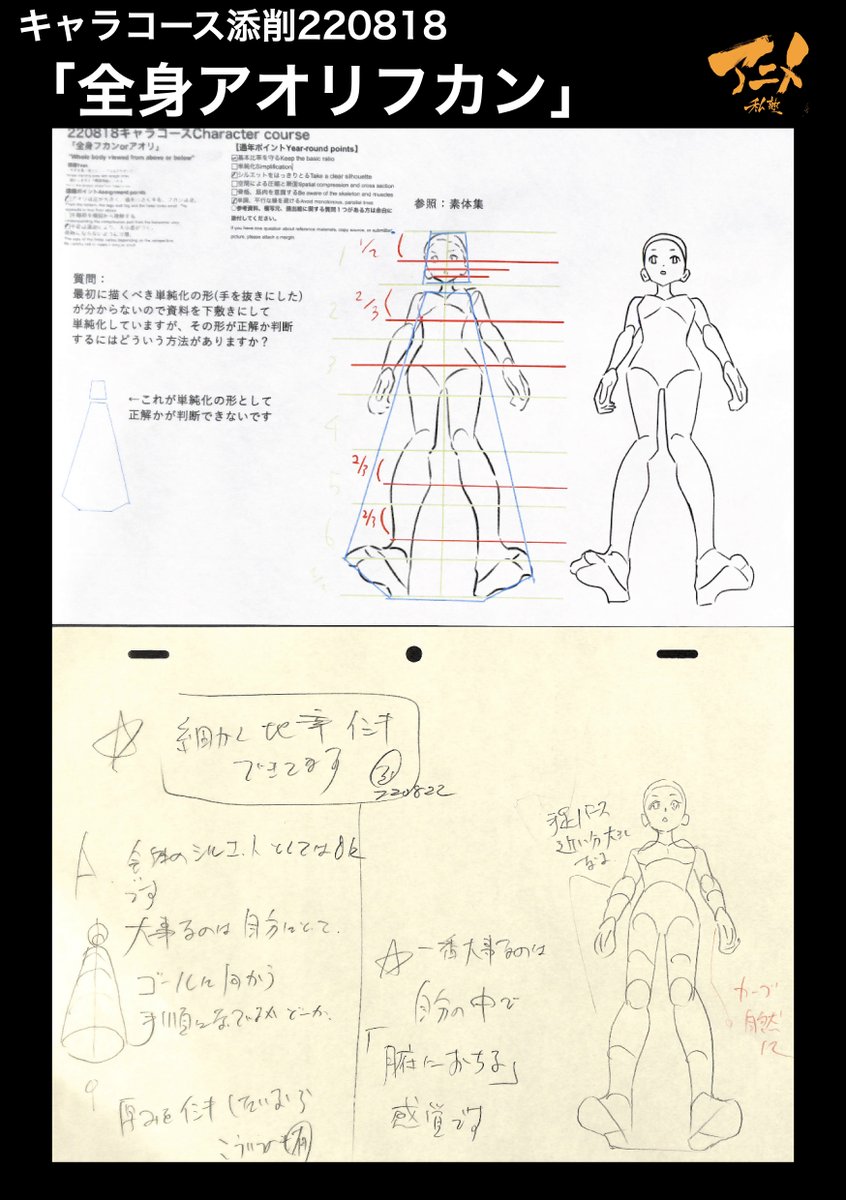 キャラコース添削220818
「全身アオリフカン」
アニメ
私塾
220818キャラコースCharacter course
「全身フカンorアオリ」
"Whole body viewed from above or below"
【通年ポイントYear-round points】
基本比率を守るKeep the basic ratio
単純化Simplification
シルエットをはっきりとるTake a clear silhouette
空間による圧縮と断面Spatial compression and cross section
骨格、筋肉を意識するBe aware of the skeleton and muscles
単調、平行な線を避けるAvoid monotonous, parallel lines
参照：素体集
質問：
最初に描くべき単純化の形(手を抜きにした)
が分からないので資料を下敷きにして
単純化していますが、その形が正解か判断
するにはどういう方法がありますか？
←これが単純化の形として
正解かが判断できないです
1/2
2/3
2/3
2/3
1
2
3
4
5
6
細かく比率意識
できてます
220822
A.
全身のシルエットとしてはOK
です
大事なのは自分にとって、
ゴールに向かう
手順になっているかどうか、
厚みを意識したいなら
こういうのも有
☆一番大事なのは
自分の中で
「腑におちる」
感覚です
手足パース
近い分大きく
なる
カーブ
自然
に